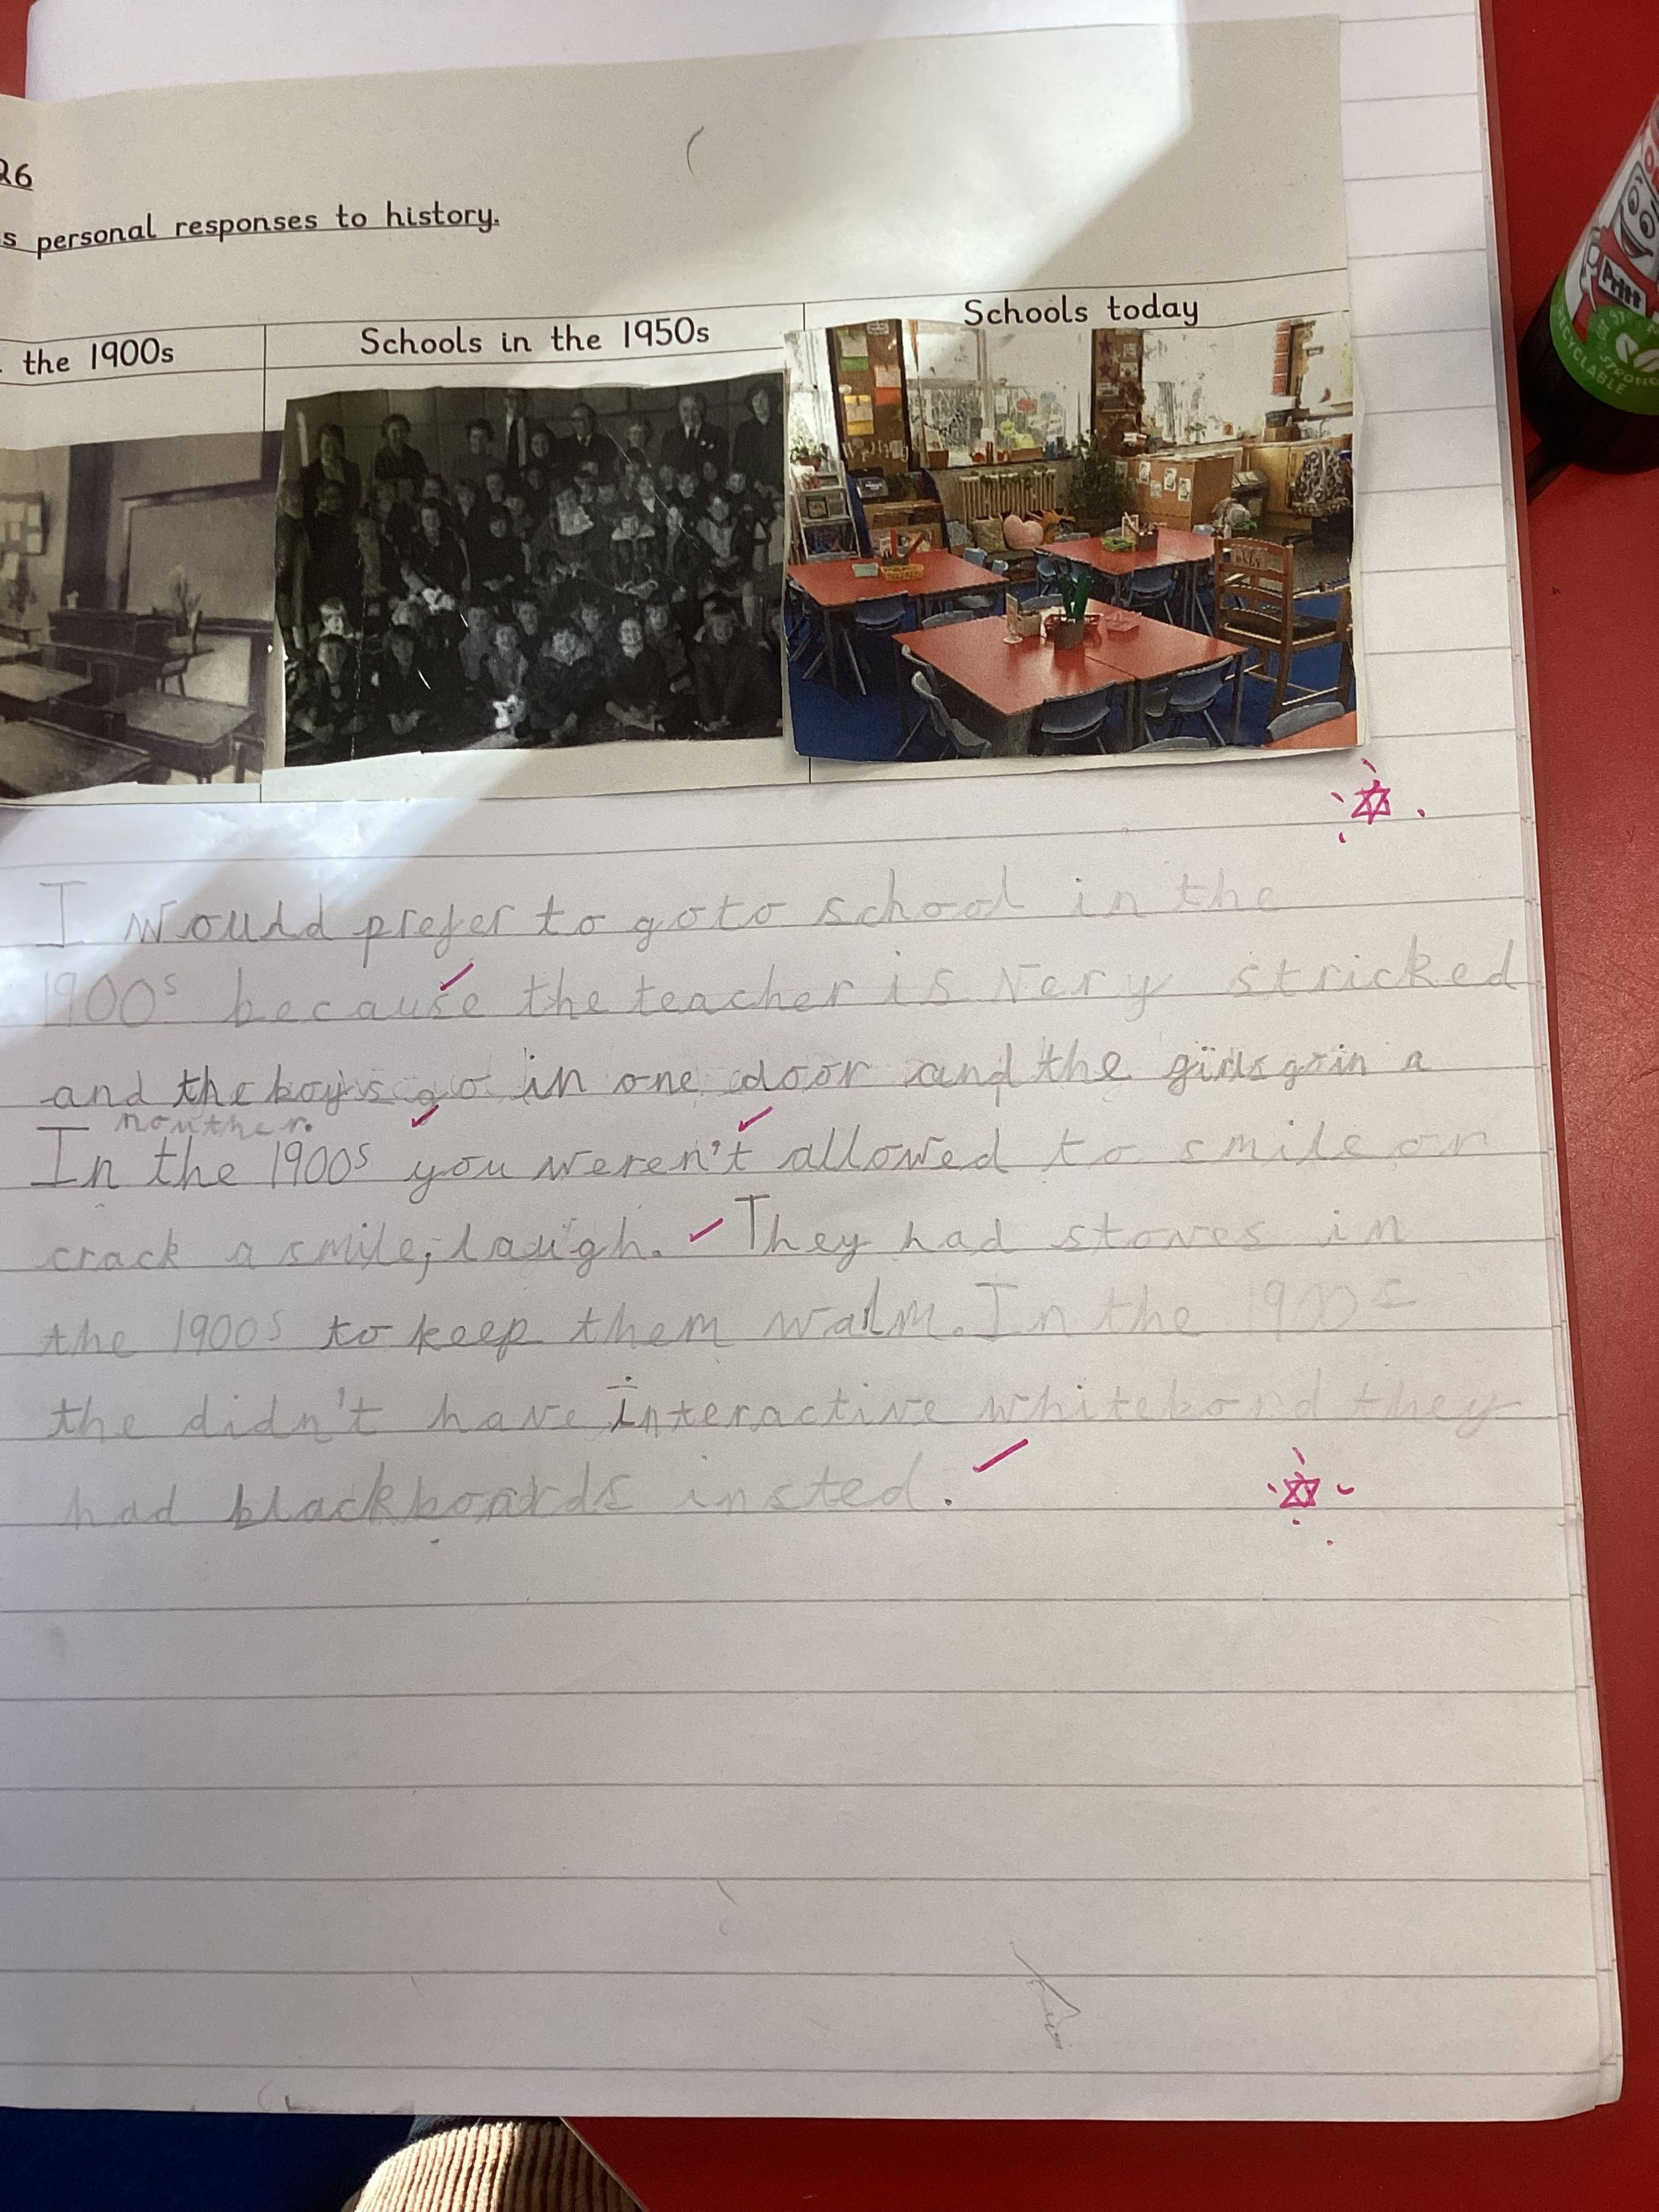 26
s personal responses to history.
the 1900s
Schools in the 1950s
Schools today
Pritt
STRONG
RECYCLABLE
I would prefer to go to school in the
1900s because the teacher is very stricked
and the boys go in one door and the girls go in a
nouther.
In the 1900s you weren't allowed to smile or
crack a smile, laugh. They had stoves in
the 1900s to keep them walm. In the 1900s
the didn't have interactive whitebord they
had blackboards insted.